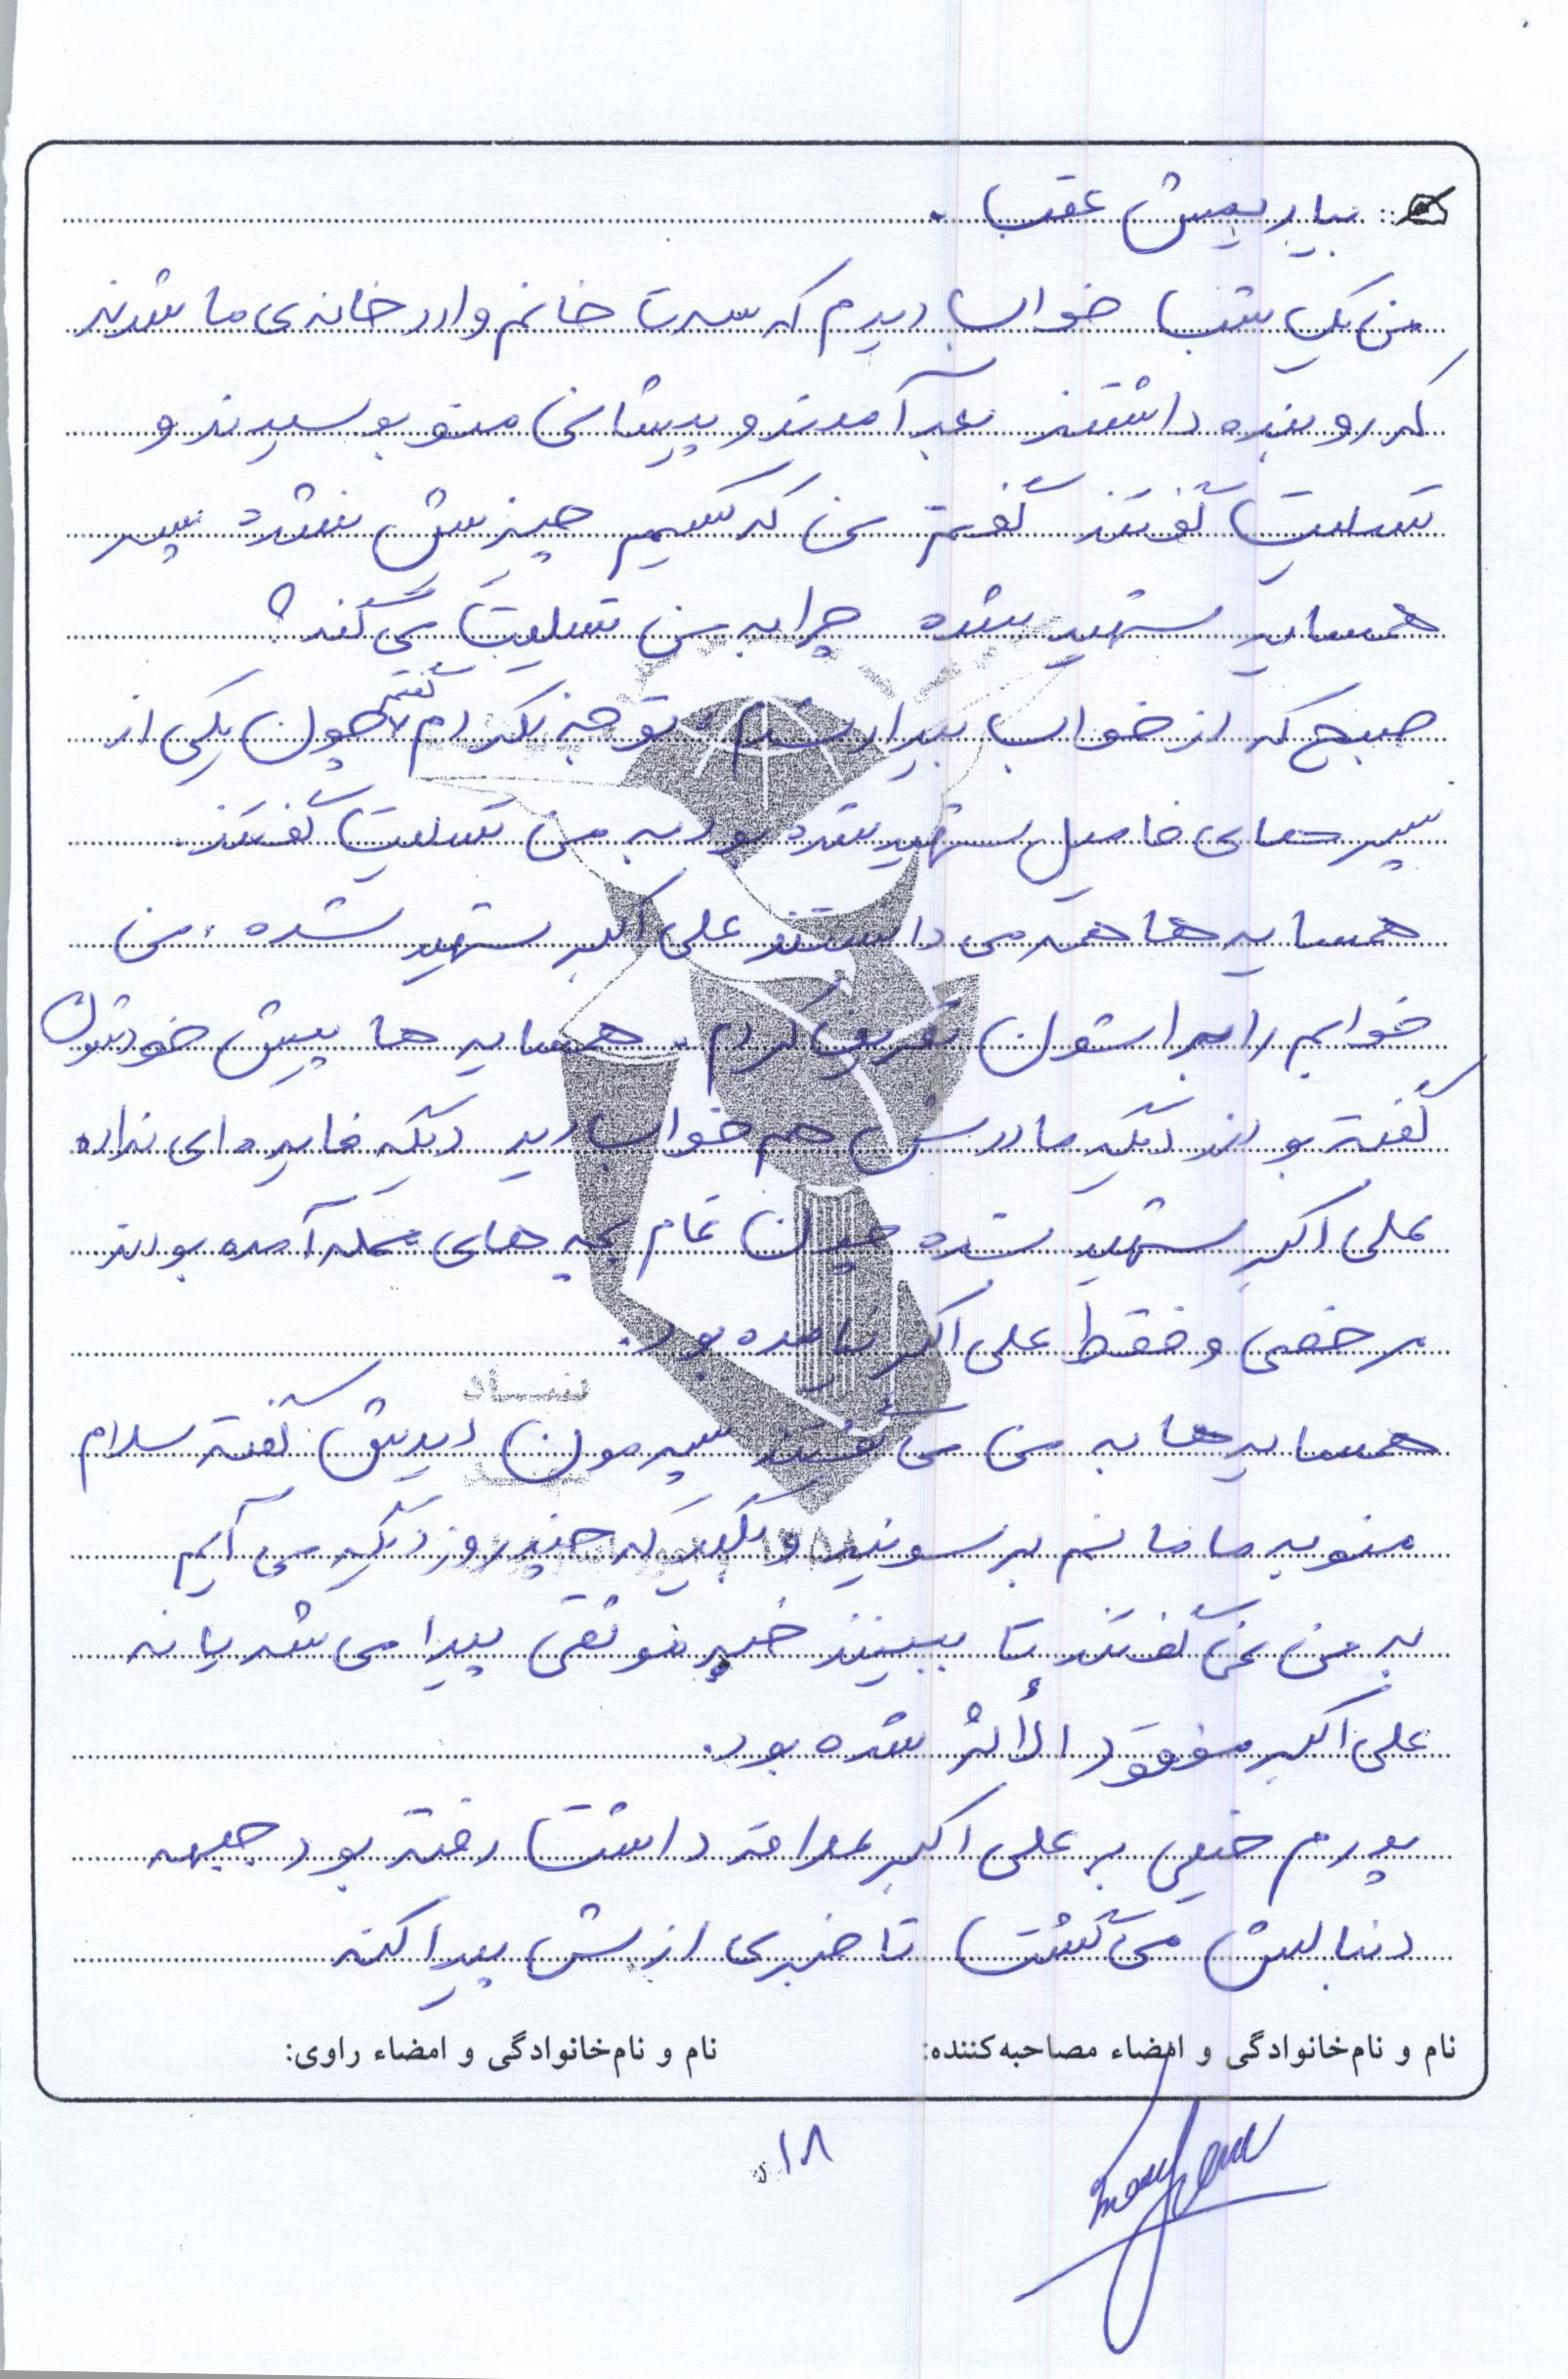 بیاریمش عقب.
من یک شب خواب دیدم که سه تا خانم وارد خانه‌ی ما شدند
که روبنده داشتند بعد آمدند و پیشانی منو بوسیدند و
تسلیت گفتند گفتم من که کسیم چیزیش نشده پسر
همسایه شهید شده چرا به من تسلیت می‌گند؟
صبح که از خواب بیدار شدم، توجه نکردم گفتم چون یکی از
پسرهای فامیل شهید شده بود به من تسلیت گفتند.
همسایه‌ها همه می‌دانستند علی اکبر شهید شده، من
خوابم را براشون تعریف کردم. همسایه‌ها پیش خودشون
گفته بودند دیگه مادرش هم خواب دید دیگه فایده‌ای نداره
علی اکبر شهید شده چون تمام بچه‌های محله آمده بودند
مرخصی و فقط علی اکبر نیامده بود.
همسایه‌ها به من می‌گفتند پسرمون دیدیش گفته سلام
منو به مامانم برسونید و بگید که چند روز دیگه می‌آیم
به من نمی‌گفتند تا ببینند خبر موثقی پیدا می‌شه یا نه
علی اکبر مفقودالأثر شده بود.
پدرم خیلی به علی اکبر علاقه داشت رفته بود جبهه
دنبالش می‌گشت تا خبری ازش پیدا کنه
نام و نام‌خانوادگی و امضاء مصاحبه‌کننده: نام و نام‌خانوادگی و امضاء راوی:
۱۸